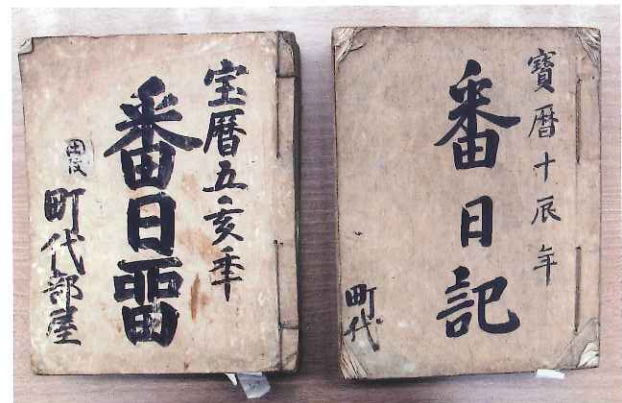 宝暦五亥年
番日畱
町代部屋
寳暦十辰年
番日記
町代